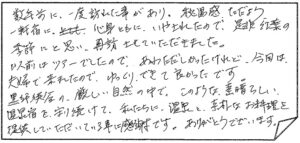 数年前に、一度訪れた事があり。秘湯感ただよう
一軒宿に、心身ともに、いやされたので、是非紅葉の
季節にと思い、再訪させていただきました。
以前はツアーでしたので、あわただしかったけれど、今回は、
夫婦で来れたので、ゆっくりできて良かったです。
黒部峡谷の、厳しい自然の中で、このような、素晴らしい
温泉宿を守り続けて、私たちに、温泉と、素朴なお料理を
提供していただいている事に感謝です。ありがとうございます。